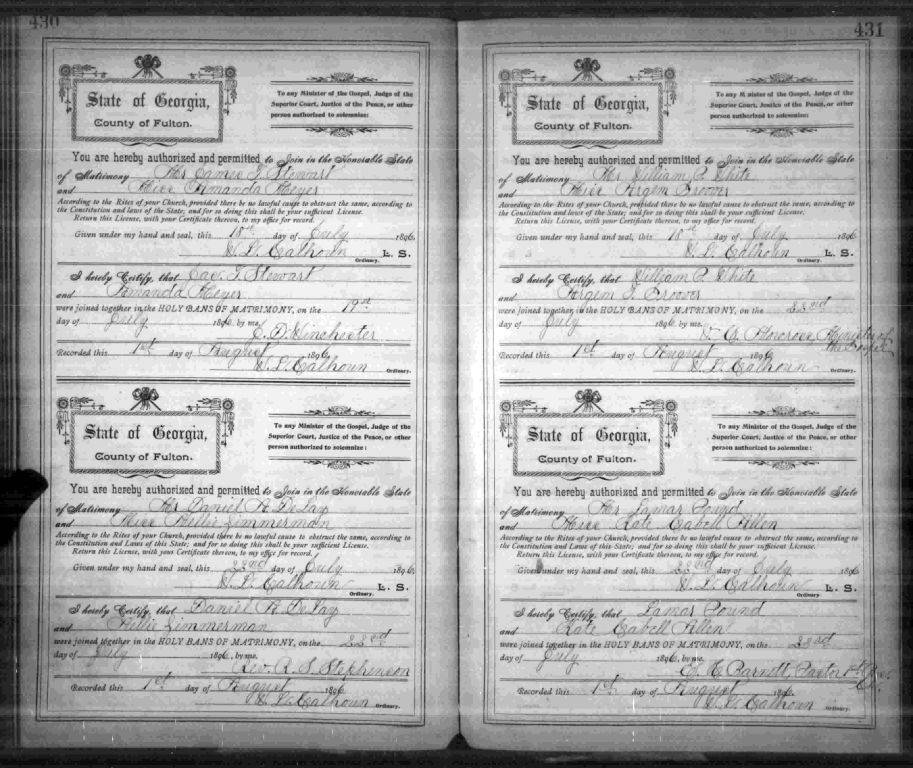 430
State of Georgia,
County of Fulton.
To any Minister of the Gospel, Judge of the
Superior Court, Justice of the Peace, or other
person authorized to solemnize:
You are hereby authorized and permitted to Join in the Honorable State
of Matrimony Mr James T. Stewart
and Miss Amanda Meyer
According to the Rites of your Church, provided there be no lawful cause to obstruct the same, according to
the Constitution and laws of the State; and for so doing this shall be your sufficient License.
Return this License, with your Certificate thereon, to my office for record.
Given under my hand and seal, this 18th day of July 1896
W. L. Calhoun L. S.
Ordinary.
I hereby Certify, that Jas. T. Stewart
and Amanda Meyer
were joined together in the HOLY BANS OF MATRIMONY, on the 19th
day of July 1896, by me,
J. D. Winchester
Recorded this 1st day of August 1896
W. L. Calhoun Ordinary.
State of Georgia,
County of Fulton.
To any Minister of the Gospel, Judge of the
Superior Court, Justice of the Peace, or other
person authorized to solemnize:
You are hereby authorized and permitted to Join in the Honorable State
of Matrimony Mr Daniel A. DeLay
and Miss Nellie Zimmerman
According to the Rites of your Church, provided there be no lawful cause to obstruct the same, according to
the Constitution and laws of this State; and for so doing this shall be your sufficient License.
Return this License, with your Certificate thereon, to my office for record.
Given under my hand and seal, this 22nd day of July 1896
W. L. Calhoun L. S.
Ordinary.
I hereby Certify, that Daniel A. DeLay
and Nellie Zimmerman
were joined together in the HOLY BANS OF MATRIMONY, on the
day of July 1896, by me,
Rev. R. S. Stephenson
Recorded this 1st day of August 1896
W. L. Calhoun Ordinary.
431
State of Georgia,
County of Fulton.
To any Minister of the Gospel, Judge of the
Superior Court, Justice of the Peace, or other
person authorized to solemnize:
You are hereby authorized and permitted to Join in the Honorable State
of Matrimony Mr William P. White
and Miss
According to the Rites of your Church, provided there be no lawful cause to obstruct the same, according to
the Constitution and laws of this State; and for so doing this shall be your sufficient License.
Return this License, with your Certificate thereon, to my office for record.
Given under my hand and seal, this 18th day of July 1896
W. L. Calhoun L. S.
Ordinary.
I hereby Certify, that William P. White
and
were joined together in the HOLY BANS OF MATRIMONY, on the 22nd
day of July 1896, by me,
Minister of
the Gospel
Recorded this 1st day of August 1896
W. L. Calhoun Ordinary.
State of Georgia,
County of Fulton.
To any Minister of the Gospel, Judge of the
Superior Court, Justice of the Peace, or other
person authorized to solemnize:
You are hereby authorized and permitted to Join in the Honorable State
of Matrimony Mr Lamar Pound
and Miss Kate Cabell Allen
According to the Rites of your Church, provided there be no lawful cause to obstruct the same, according to
the Constitution and Laws of this State; and for so doing this shall be your sufficient License.
Return this License, with your Certificate thereon, to my office for record.
Given under my hand and seal, this 22nd day of July 1896
W. L. Calhoun L. S.
Ordinary.
I hereby Certify, that Lamar Pound
and Kate Cabell Allen
were joined together in the HOLY BANS OF MATRIMONY, on the
day of July 1896, by me,
E. H. Barnett, Pastor 1st
Recorded this 1st day of August 1896
W. L. Calhoun Ordinary.